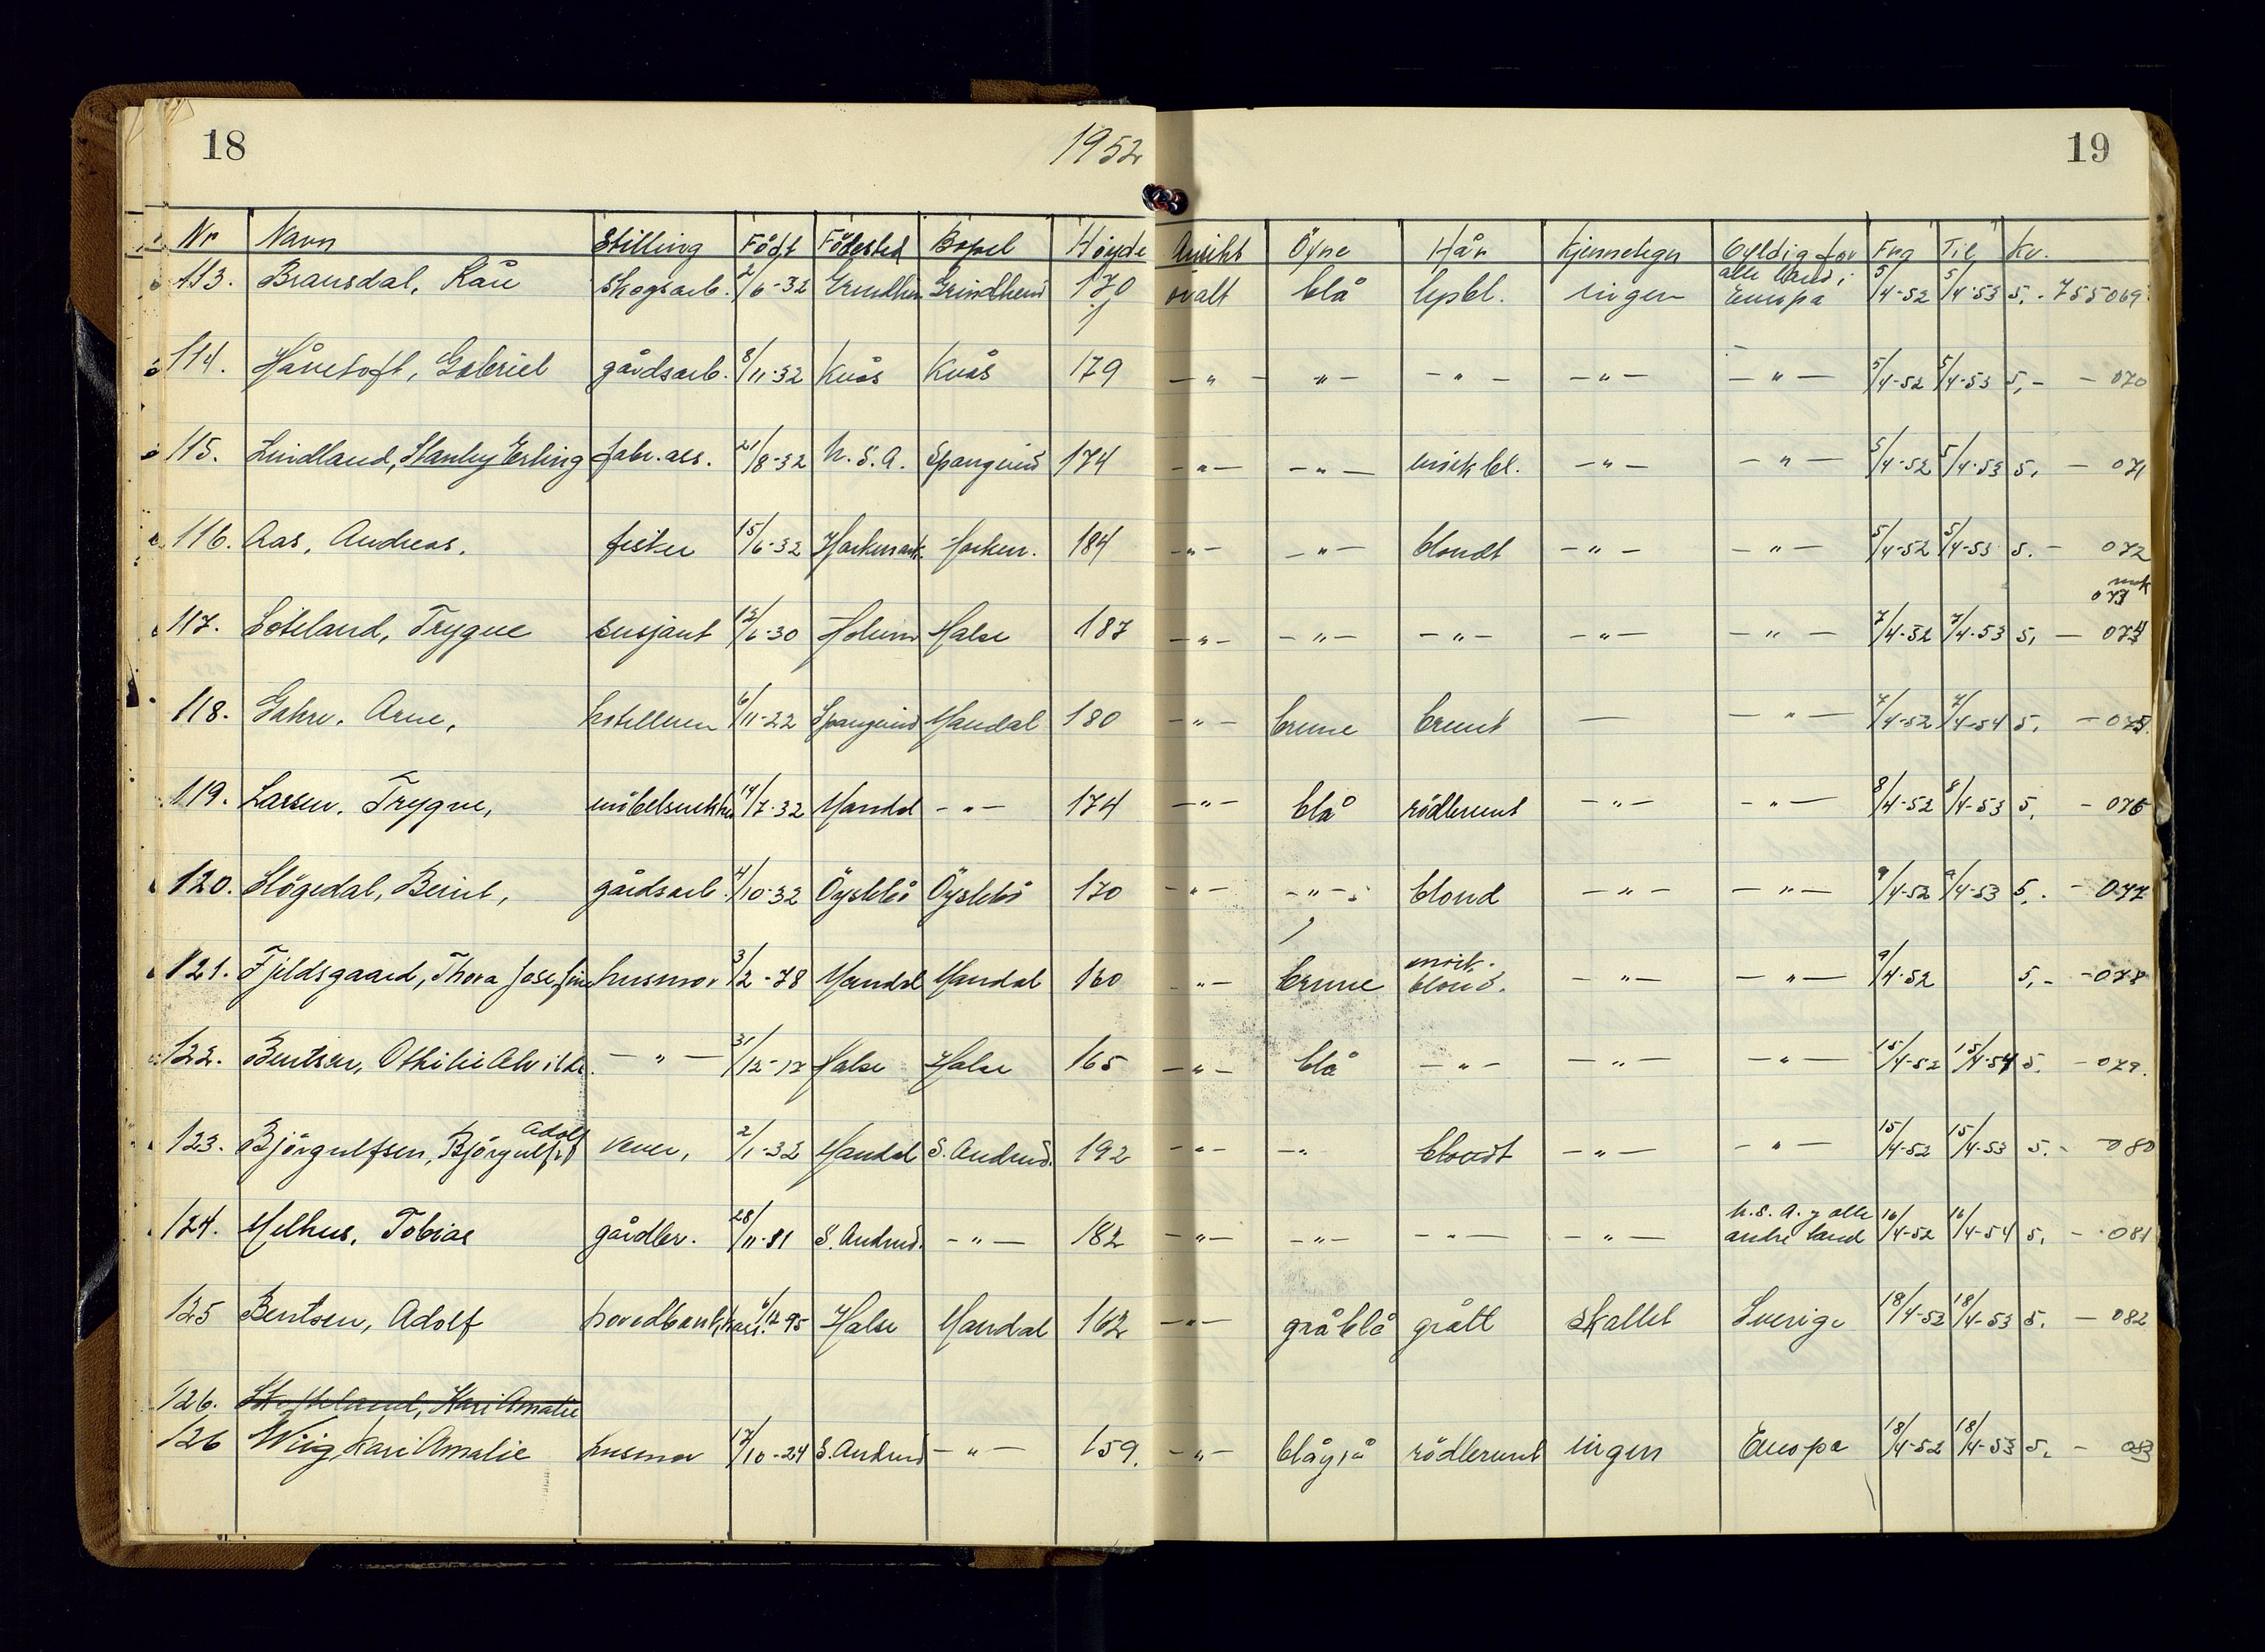 18 1952 19
Nr Navn Stilling Født Födested Bopel Høyde Ansikt Öyne Hår Kjennetegn Gyldig for Fra Til Kv.
113. Bransdal, Kåre skogsarb. 2/6-32 Grindheim Grindheim 170 ovalt blå lysbl. ingen alle land i Europa 5/4-52 5/4-53 5,- 755069
114. Håvetoft, Gabriel gårdsarb. 8/11-32 Kvås Kvås 179 -"- -"- -"- -"- -"- 5/4-52 5/4-53 5,- - 070
115. Lindland, Stanley Erling fabr.ass. 21/8-32 U.S.A. Spangereid 174 -"- -"- mörk bl. -"- -"- 5/4-52 5/4-53 5, - 071
116. Aas, Andreas. fisker 15/6-32 Harkmark Harkm. 184 -"- -"- blondt -"- -"- 5/4-52 5/4-53 5. - 072
mak 073
117. Löteland, Trygve sersjant 12/6-30 Holum Halse 187 -"- -"- -"- -"- -"- 7/4-52 7/4-53 5, - 074
118. Gahre. Arne, hotelleier 6/11-22 Spangereid Mandal 180 -"- brune brunt — -"- 7/4-52 7/4-54 5, - 075
119. Larsen. Trygve, möbelsnekker 14/7-32 Mandal -"- 174 -"- blå rödbrunt -"- -"- 8/4-52 8/4-53 5, - 076
120. Högedal, Berint, gårdsarb. 4/10-32 Öyslebö Öyslebö 170 -"- -"- blond -"- -"- 9/4-52 9/4-53 5,- - 077
121. Fjeldsgaard, Thora Josefine husmor 3/2-78 Mandal Mandal 160 -"- brune mörk blond. -"- -"- 9/4-52 5,- - 078
122. Bentsen, Othilie Alvilde. -"- 31/12-17 Halse Halse 165 -"- blå -"- -"- -"- 15/4-52 15/4-54 5. - 079.
123. Björgulfsen, Björgulf Adolf vever, 2/1-32 Mandal S. Audned. 192 -"- -"- blondt -"- -"- 15/4-52 15/4-53 5.- - 080
124. Melhus, Tobias gårdbr. 28/11-81 S. Audned. -"- 182 -"- -"- -"- -"- U.S.A. og alle andre land 16/4-52 16/4-54 5, - 081
125 Bentsen, Adolf hovedbankkass. 6/12 95 Halse Mandal 162 -"- gråblå grått skallet Sverige 18/4-52 18/4-53 5. - 082
126. Skofteland, Kari Amalie
126 Wiig, Kari Amalie husmor 17/10-24 S. Audned -"- 159. -"- blågrå rödbrunt ingen Europa 18/4-52 18/4-53 5, - 083